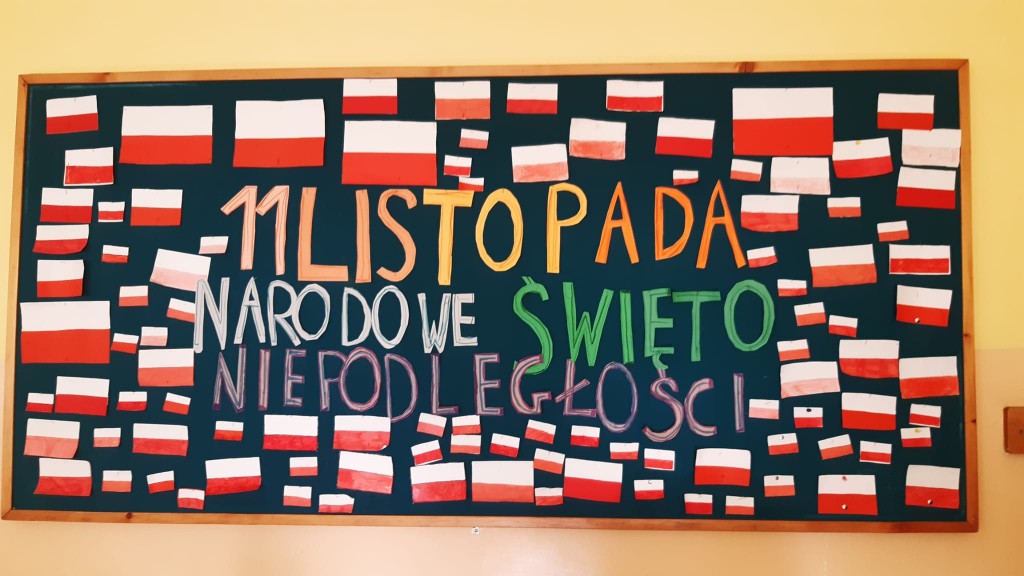 11 LISTOPADA
NARODOWE ŚWIĘTO
NIEPODLEGŁOŚCI